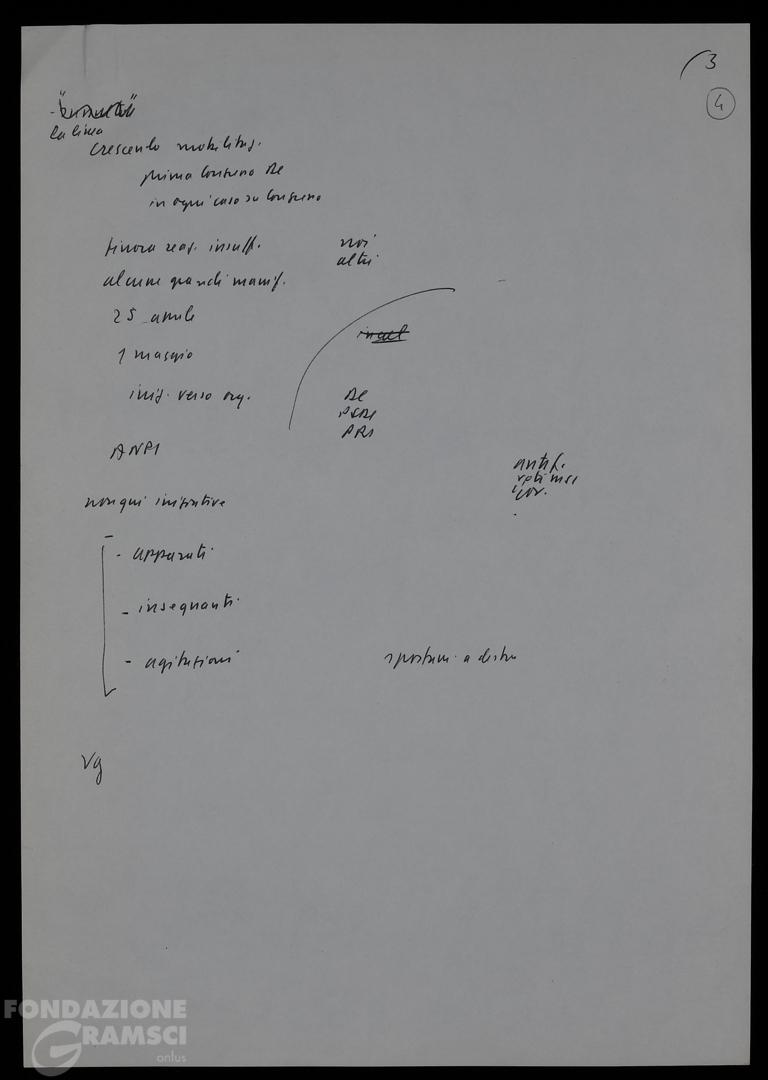 3
4
la linea
crescendo mobilitaz.
prima Congresso DC
in ogni caso su Congresso
finora reaz. insuff. noi
altri
alcune grandi manif.
25 aprile
1 maggio
iniz. verso org. DC
PSDI
PRI
ANPI
antif.
voti msi
gov.
iniziative
- apparati
- insegnanti
- agitazioni spostam. a destra
Vg
FONDAZIONE
GRAMSCI
onlus